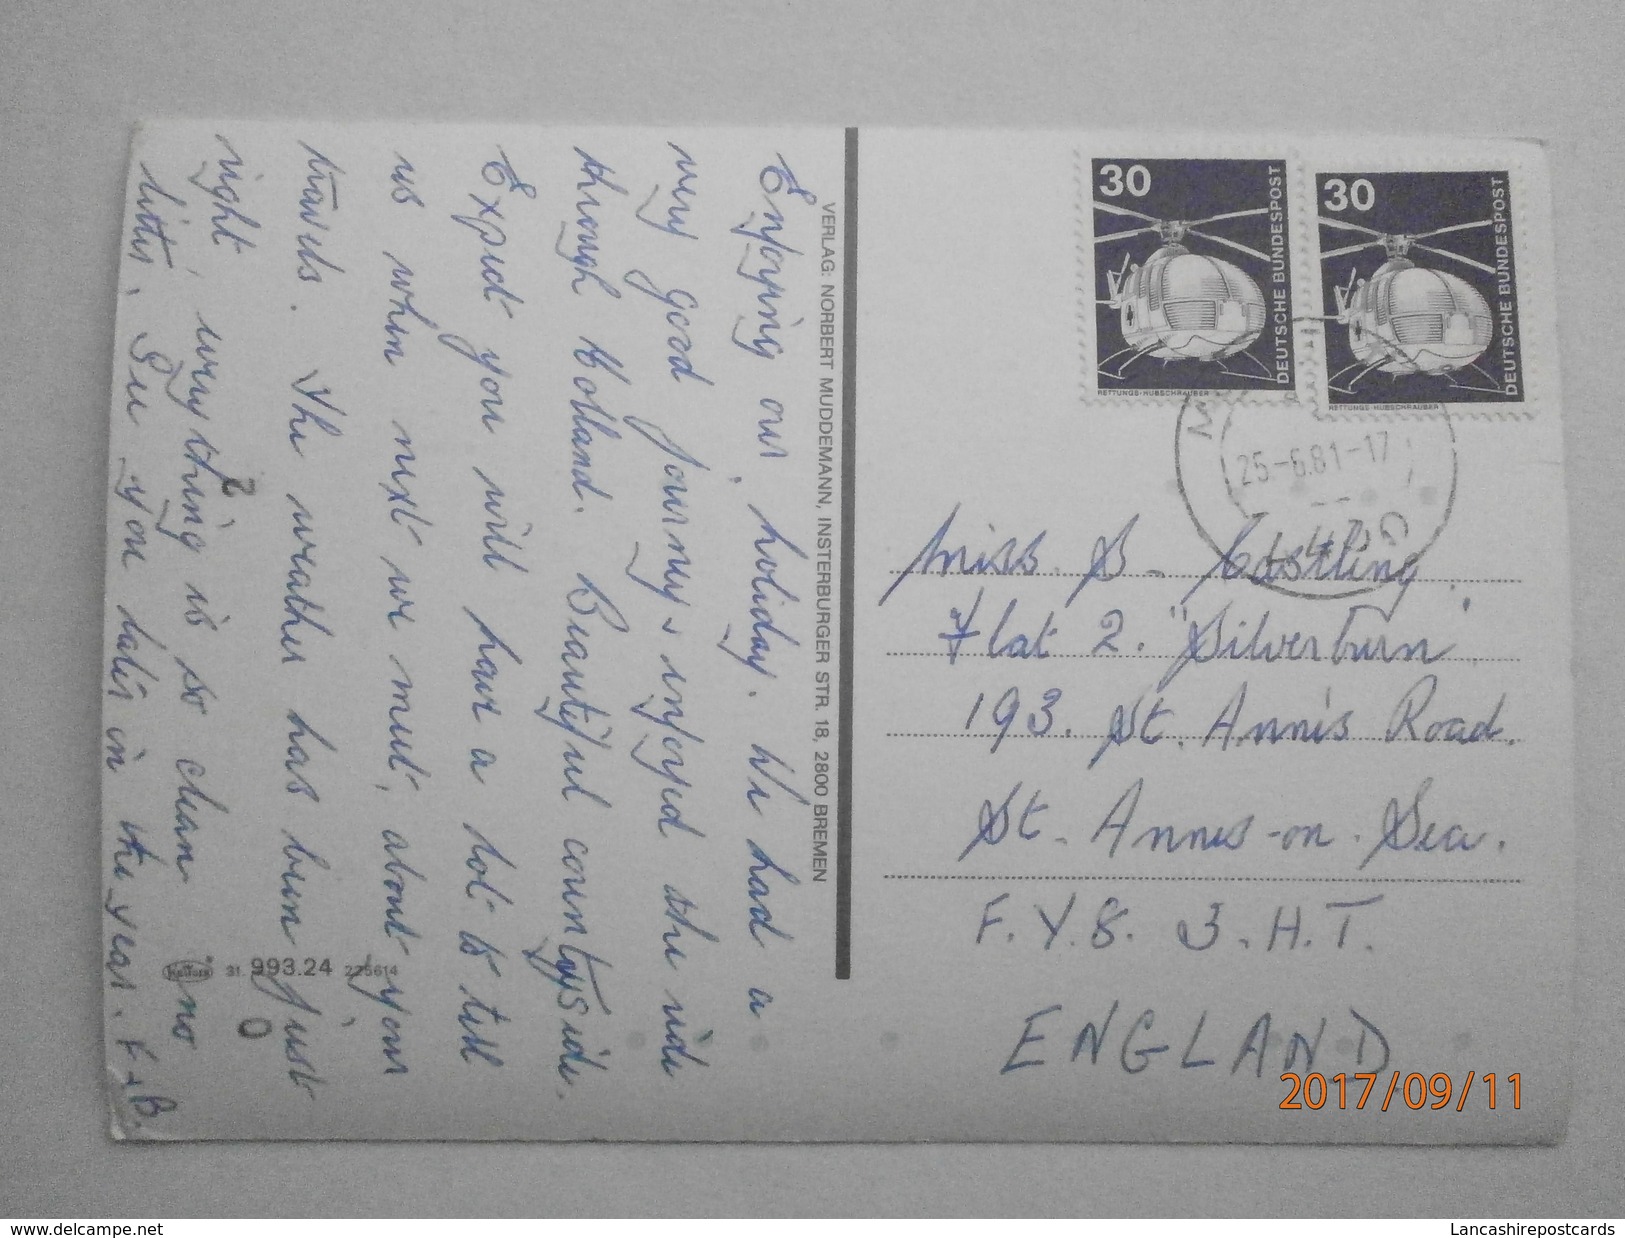 Enjoying our holiday. We had a
very good journey, enjoyed the ride
through Holland. Beautiful countryside.
Expect you will have a lot to tell
us when next we meet, about your
travels. The weather has been just
right, everything is so clean no
litter. See you later in the year. F + B.
VERLAG: NORBERT MUDDEMANN, INSTERBURGER STR. 18, 2800 BREMEN
31. 993.24 225614
2
0
30
DEUTSCHE BUNDESPOST
RETTUNGS-HUBSCHRAUBER
30
DEUTSCHE BUNDESPOST
RETTUNGS-HUBSCHRAUBER
25-6.81-17
Miss S. Costling.
Flat 2. "Silverburn"
193. St. Anne's Road.
St. Annes-on-Sea.
F.Y.8. 3.H.T.
ENGLAND
2017/09/11
www.delcampe.net
Lancashirepostcards